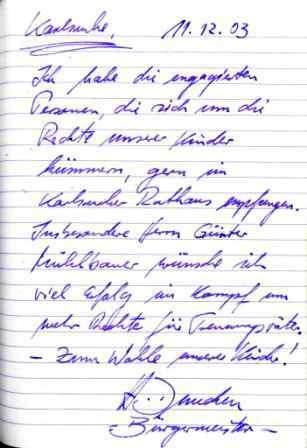 Karlsruhe, 11.12.03
Ich habe die engagierten
Personen, die sich um die
Rechte unserer Kinder
kümmern, gern im
Karlsruher Rathaus empfangen.
Insbesondere Herrn Günter
Mühlbauer wünsche ich
viel Erfolg im Kampf um
mehr Rechte für Trennungsväter
– Zum Wohle unserer Kinder!
- Bürgermeister -